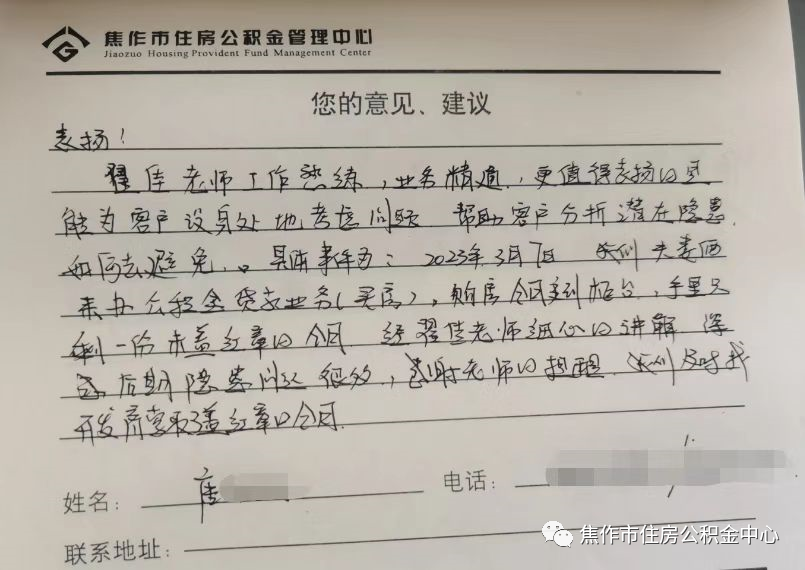 焦作市住房公积金管理中心
Jiaozuo Housing Provident Fund Management Center
您的意见、建议
表扬!
翟佳老师工作熟练,业务精通,更值得表扬的是
能为客户设身处地考虑问题 帮助客户分析潜在隐患
如何去避免。具体事件为:2023年3月7日 我们夫妻俩
来办公积金贷款业务(买房),购房合同到柜台,手里只
剩一份未盖红章的合同 经翟佳老师细心的讲解 深
后期隐患问题很多,感谢老师的提醒 我们及时找
开发商索取了盖红章的合同
姓名: 唐
电话:
联系地址:
焦作市住房公积金中心